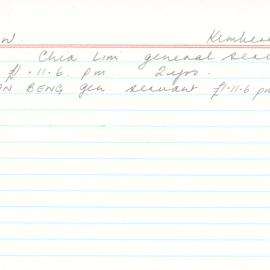 w.                    Kimber
Chia Lim general ser
£1.11.6 pm 2 yrs.
N BENG gen. servant £1.11.6 pm